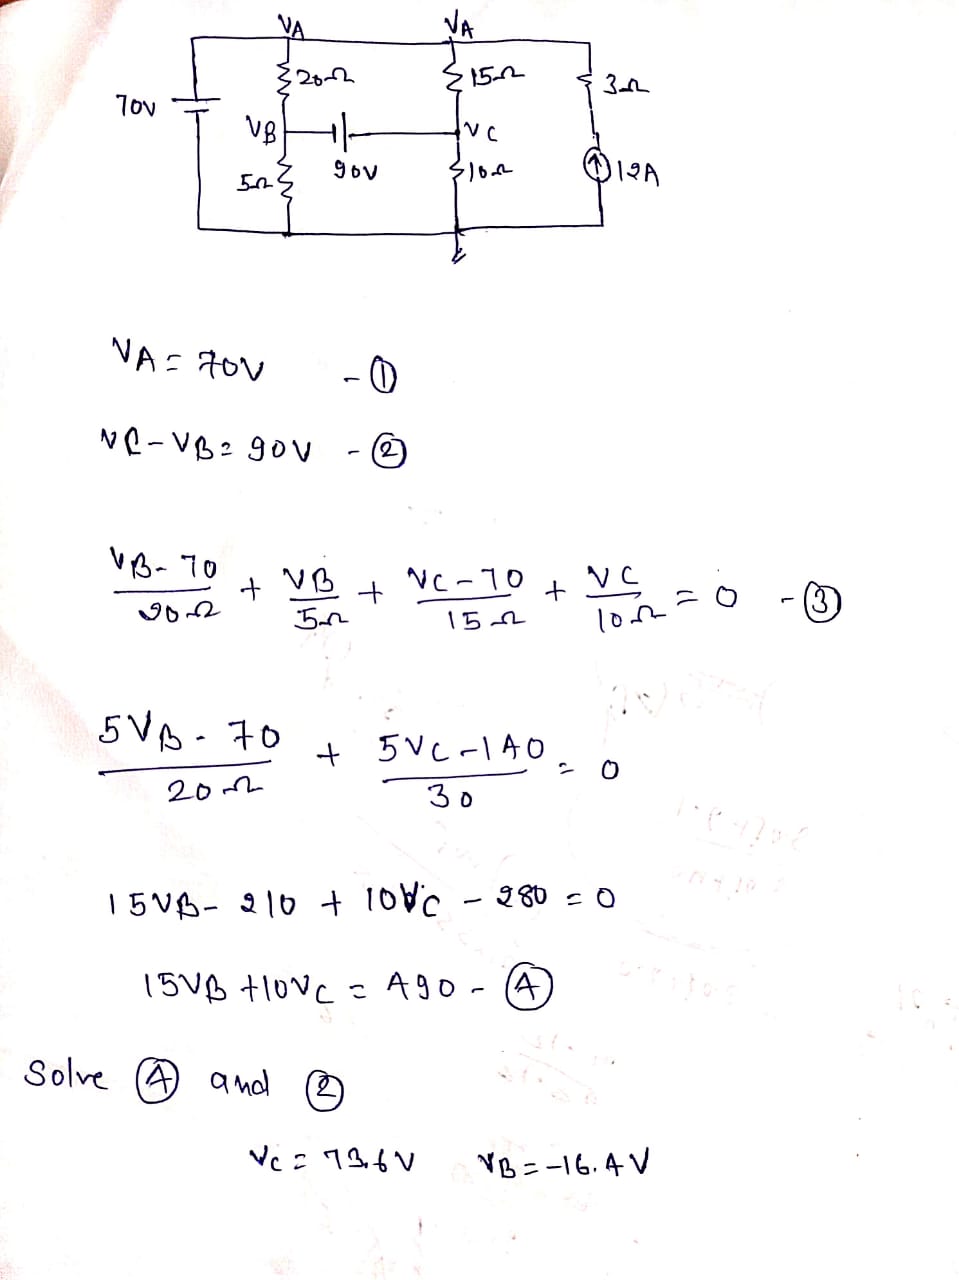 VA VA
20Ω 15Ω 3Ω
70V
VB VC
90V
5Ω 10Ω 12A
VA = 70V - ①
VC - VB = 90V - ②
VB - 70 / 20Ω + VB / 5Ω + VC - 70 / 15Ω + VC / 10Ω = 0 - ③
5VB - 70 / 20Ω + 5VC - 140 / 30 = 0
15VB - 210 + 10VC - 280 = 0
15VB + 10VC = 490 - ④
Solve ④ and ②
VC = 73.6V VB = -16.4V